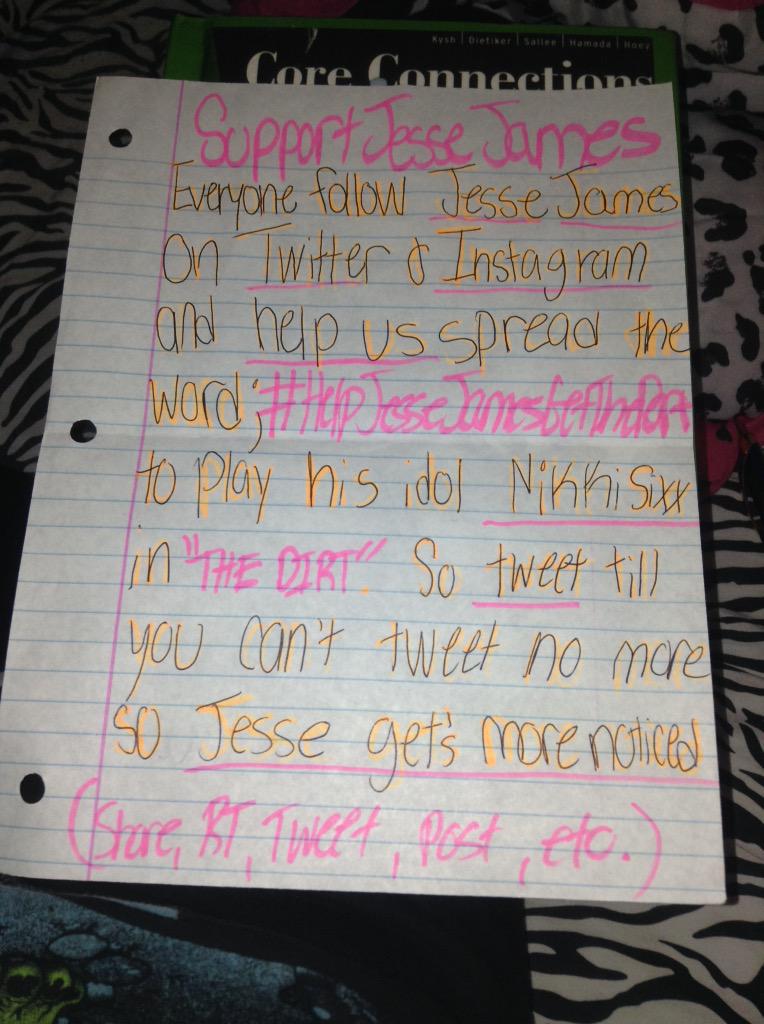 Kysh | Dietiker | Sallee | Hamada | Hoey
Core Connections
Support Jesse James
Everyone follow Jesse James
on Twitter & Instagram
and help us spread the
word; #HelpJesseJamesGetThePart
to play his idol Nikki Sixx
in "THE DIRT". So tweet till
you can't tweet no more
so Jesse get's more noticed
(Share, RT, Tweet, Post, etc.)